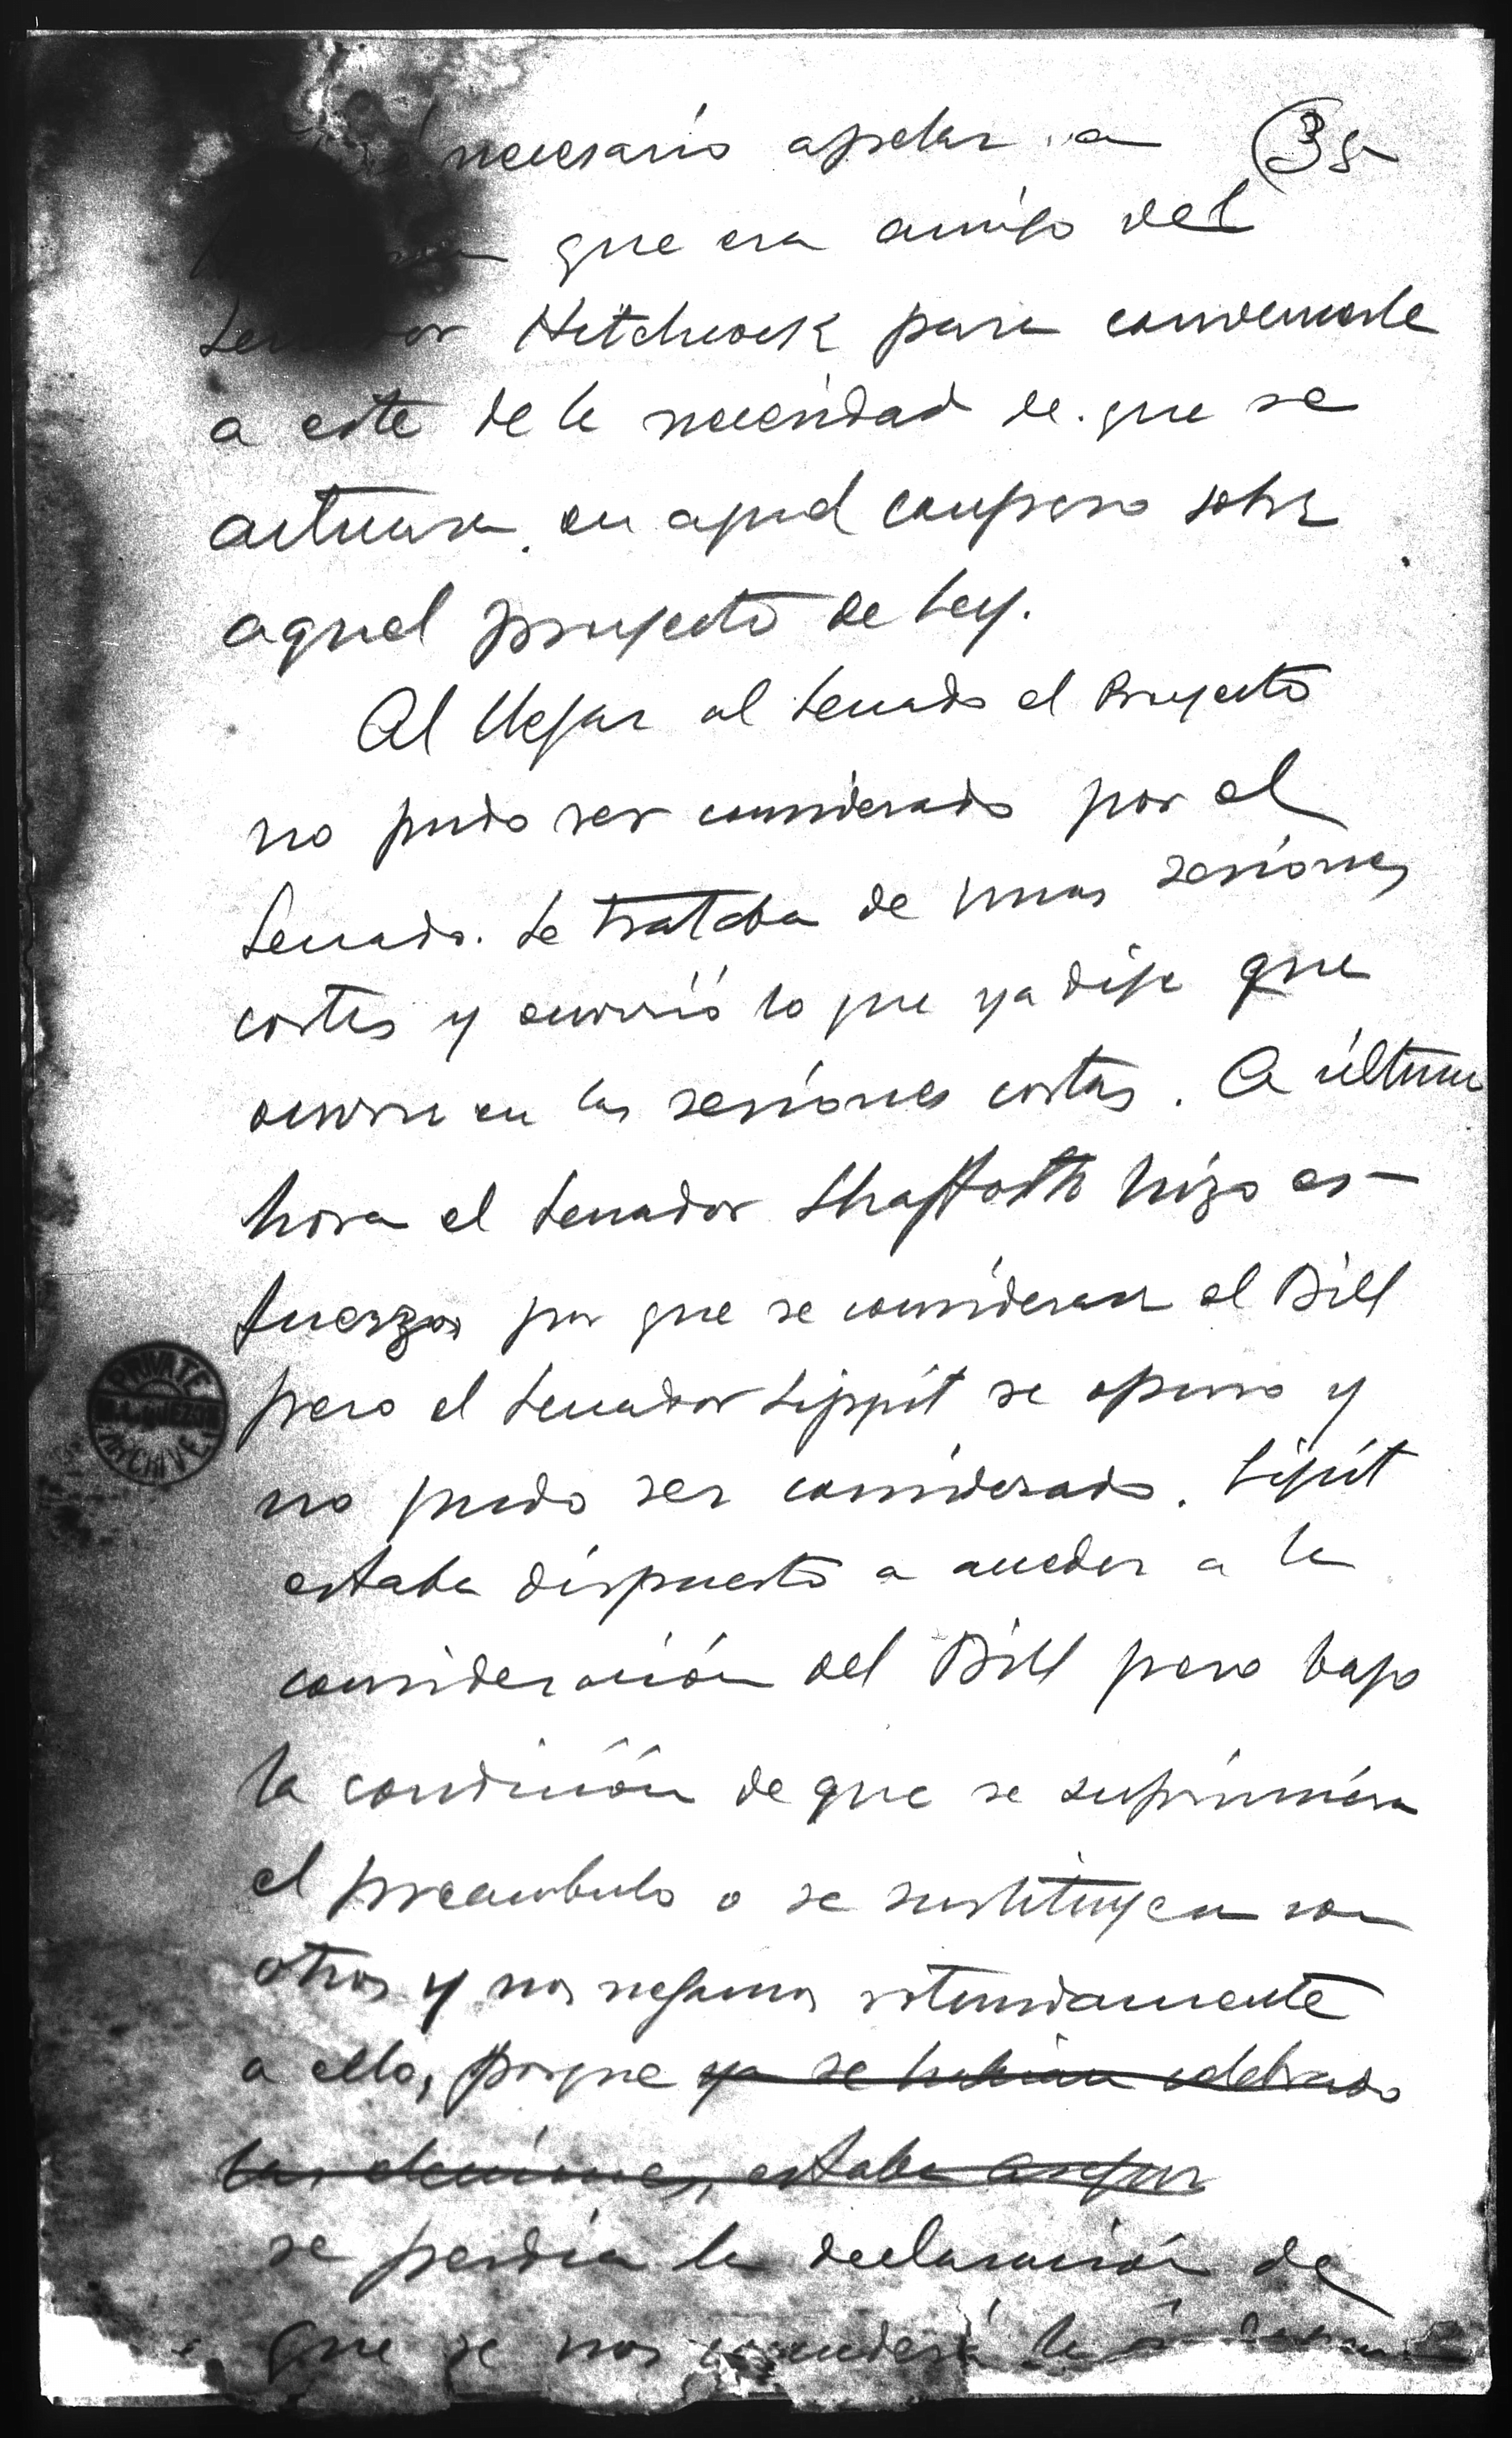 necesario apelar a
35
que era amigo del
Senador Hitchcock para convencerle
a este de la necesidad de que se
actuara en aquel Congreso sobre
aquel proyecto de Ley.
Al llegar al Senado el Proyecto
no pudo ser considerado por el
Senado. Se trataba de unas sesiones
cortas y ocurrió lo que ya dije que
ocurre en las sesiones cortas. A última
hora el Senador Shaffoth hizo es-
fuerzos por que se considerara el Bill
pero el Senador Lippit se opuso y
no pudo ser considerado. Lipit
estaba dispuesto a acceder a la
consideración del Bill pero bajo
la condición de que se suprimiera
el preambulo o se sustituyera con
otros y nos negamos rotundamente
a ello, porque ya se habian celebrado
las elecciones, estaba asegur
se perdía la declaración de
que se nos concederá la
PRIVATE
M.L. QUEZON
ARCHIVE